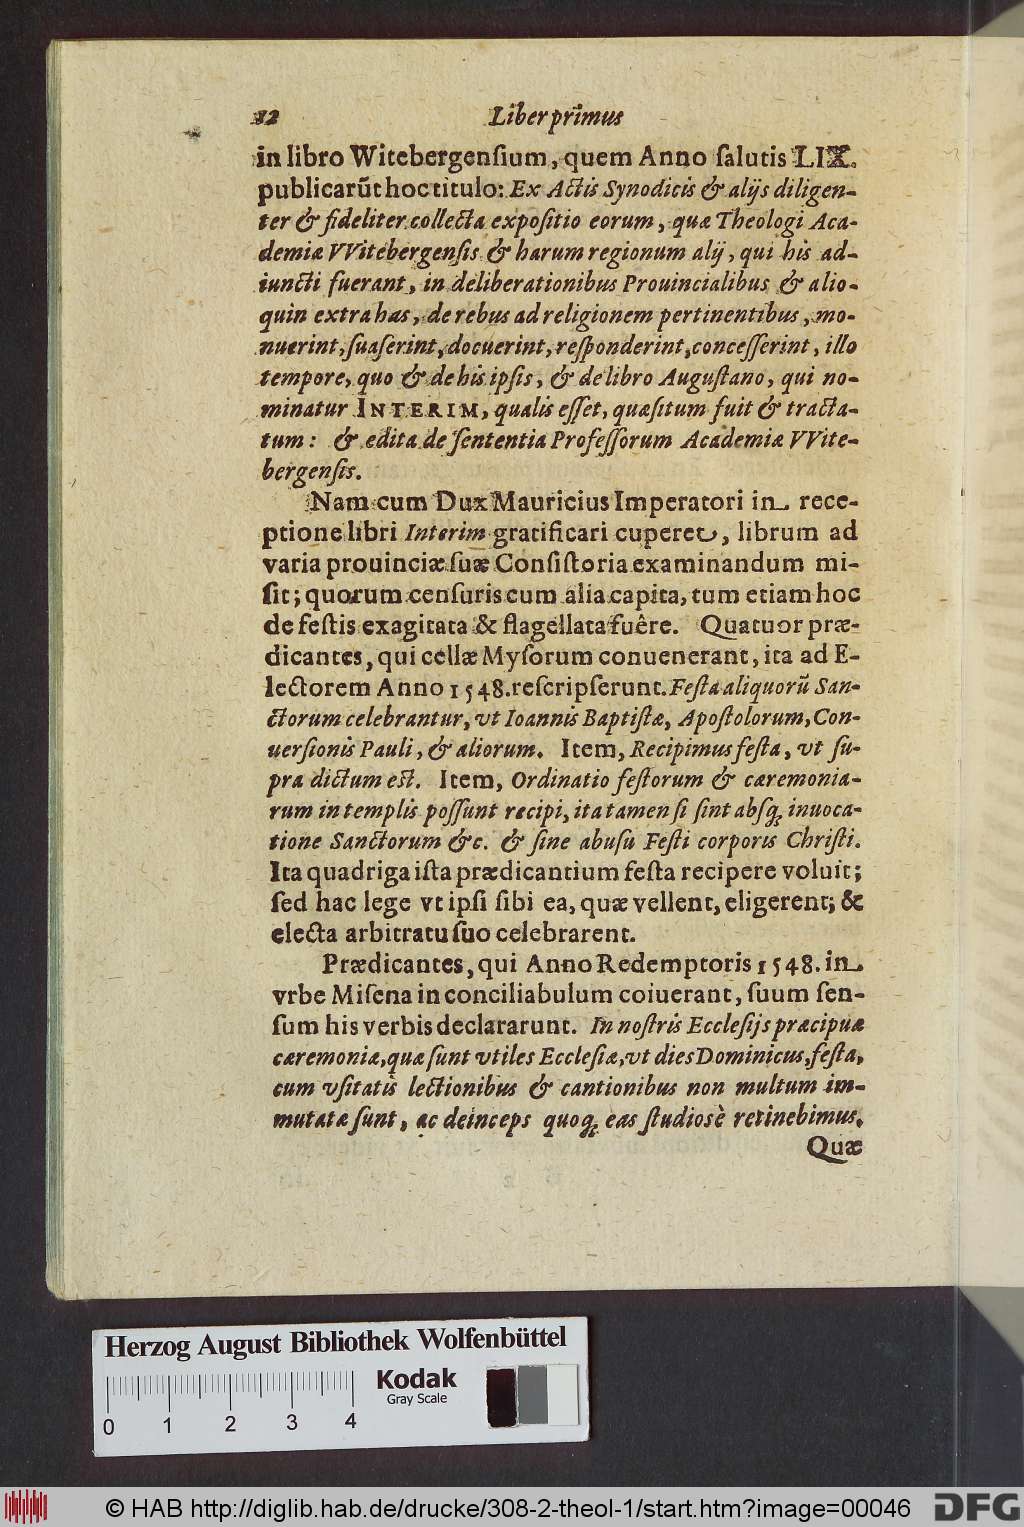 12 Liber primus
in libro Witebergensium, quem Anno salutis LIX.
publicarũt hoc titulo: Ex Actis Synodicis & alijs diligen-
ter & fideliter collecta expositio eorum, quæ Theologi Aca-
demiæ VVitebergensis & harum regionum alij, qui his ad-
iuncti fuerant, in deliberationibus Prouincialibus & alio-
quin extra has, de rebus ad religionem pertinentibus, mo-
nuerint, suaserint, docuerint, responderint, concesserint, illo
tempore, quo & de his ipsis, & de libro Augustano, qui no-
minatur INTERIM, qualis esset, quæsitum fuit & tracta-
tum: & edita de sententia Professorum Academiæ VVite-
bergensis.
Nam cum Dux Mauricius Imperatori in rece-
ptione libri Interim gratificari cuperet, librum ad
varia prouinciæ suæ Consistoria examinandum mi-
sit; quorum censuris cum alia capita, tum etiam hoc
de festis exagitata & flagellata fuêre. Quatuor præ-
dicantes, qui cellæ Mysorum conuenerant, ita ad E-
lectorem Anno 1548. rescripserunt. Festa aliquorũ San-
ctorum celebrantur, vt Ioannis Baptistæ, Apostolorum, Con-
uersionis Pauli, & aliorum. Item, Recipimus festa, vt su-
pra dictum est. Item, Ordinatio festorum & cæremonia-
rum in templis possunt recipi, ita tamen si sint absq; inuoca-
tione Sanctorum &c. & sine abusu Festi corporis Christi.
Ita quadriga ista prædicantium festa recipere voluit;
sed hac lege vt ipsi sibi ea, quæ vellent, eligerent; &
electa arbitratu suo celebrarent.
Prædicantes, qui Anno Redemptoris 1548. in
vrbe Misena in conciliabulum coiuerant, suum sen-
sum his verbis declararunt. In nostris Ecclesijs præcipuæ
cæremoniæ, quæ sunt vtiles Ecclesiæ, vt dies Dominicus, festa,
cum vsitatis lectionibus & cantionibus non multum im-
mutatæ sunt, ac deinceps quoq; eas studiosè retinebimus.
Quæ
Herzog August Bibliothek Wolfenbüttel
Kodak
Gray Scale
0 1 2 3 4
© HAB http://diglib.hab.de/drucke/308-2-theol-1/start.htm?image=00046
DFG